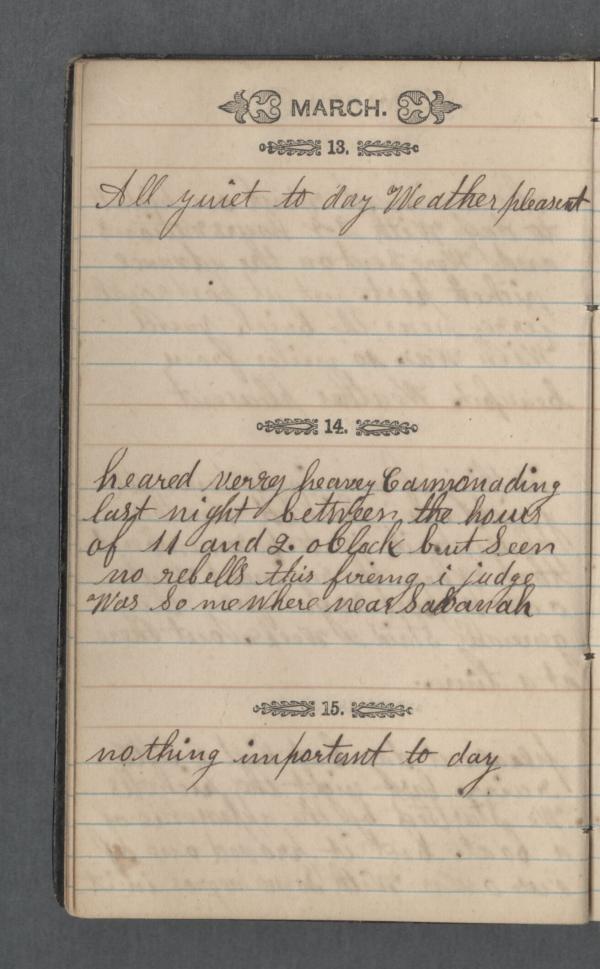 MARCH.
13.
All quiet to day Weather pleasent
14.
heared verry heavey Cannonading
last night between the hours
of 11 and 2. oClock but Seen
no rebells this fireing i judge
Was Somewhere near Savanah
15.
nothing important to day